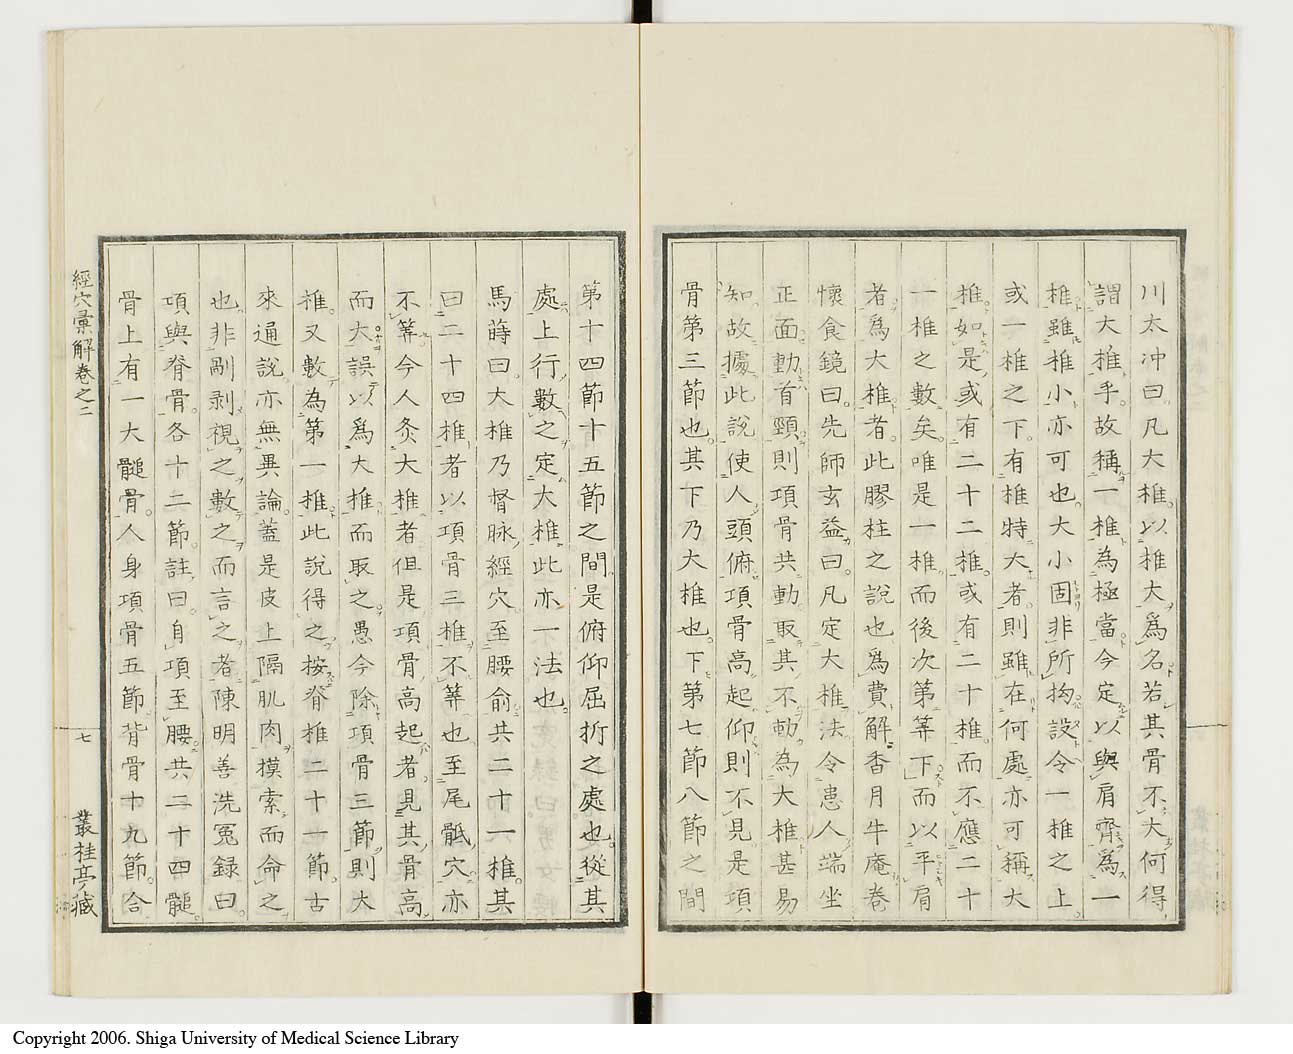 川太冲曰凡大椎以椎大爲名若其骨不大何得
謂大椎乎故稱一椎為極當今定以與肩齊為一
椎雖椎小亦可也大小固非所拘設令一椎之上
或一椎之下有椎特大者則雖在何處亦可稱大
椎如是或有二十二椎或有二十椎而不應二十
一椎之數矣唯是一椎而後次第筭下而以平肩
者爲大椎者此膠柱之說也爲費解香月牛庵卷
懷食鏡曰先師玄益曰凡定大椎法令患人端坐
正面動首頸則項骨共動取其不動為大椎甚易
知故據此說使人頭俯項骨高起仰則不見是項
骨第三節也其下乃大椎也下第七節八節之間
第十四節十五節之間是俯仰屈折之處也從其
處上行數之定大椎此亦一法也
馬蒔曰大椎乃督脉經穴至腰俞共二十一椎其
曰二十四椎者以項骨三椎不筭也至尾骶穴亦
不筭今人灸大椎者但是項骨高起者見其骨高
而大誤以爲大椎而取之愚今除項骨三節則大
椎又數為第一椎此說得之按脊椎二十一節古
來通說亦無異論蓋是皮上隔肌肉摸索而命之
也非剮剥視之數之而言之者陳明善洗冤録曰
項與脊骨各十二節註曰自項至腰共二十四髓
骨上有一大髓骨人身項骨五節背骨十九節合
經穴彙解卷之二
七
叢桂亭藏
Copyright 2006. Shiga University of Medical Science Library